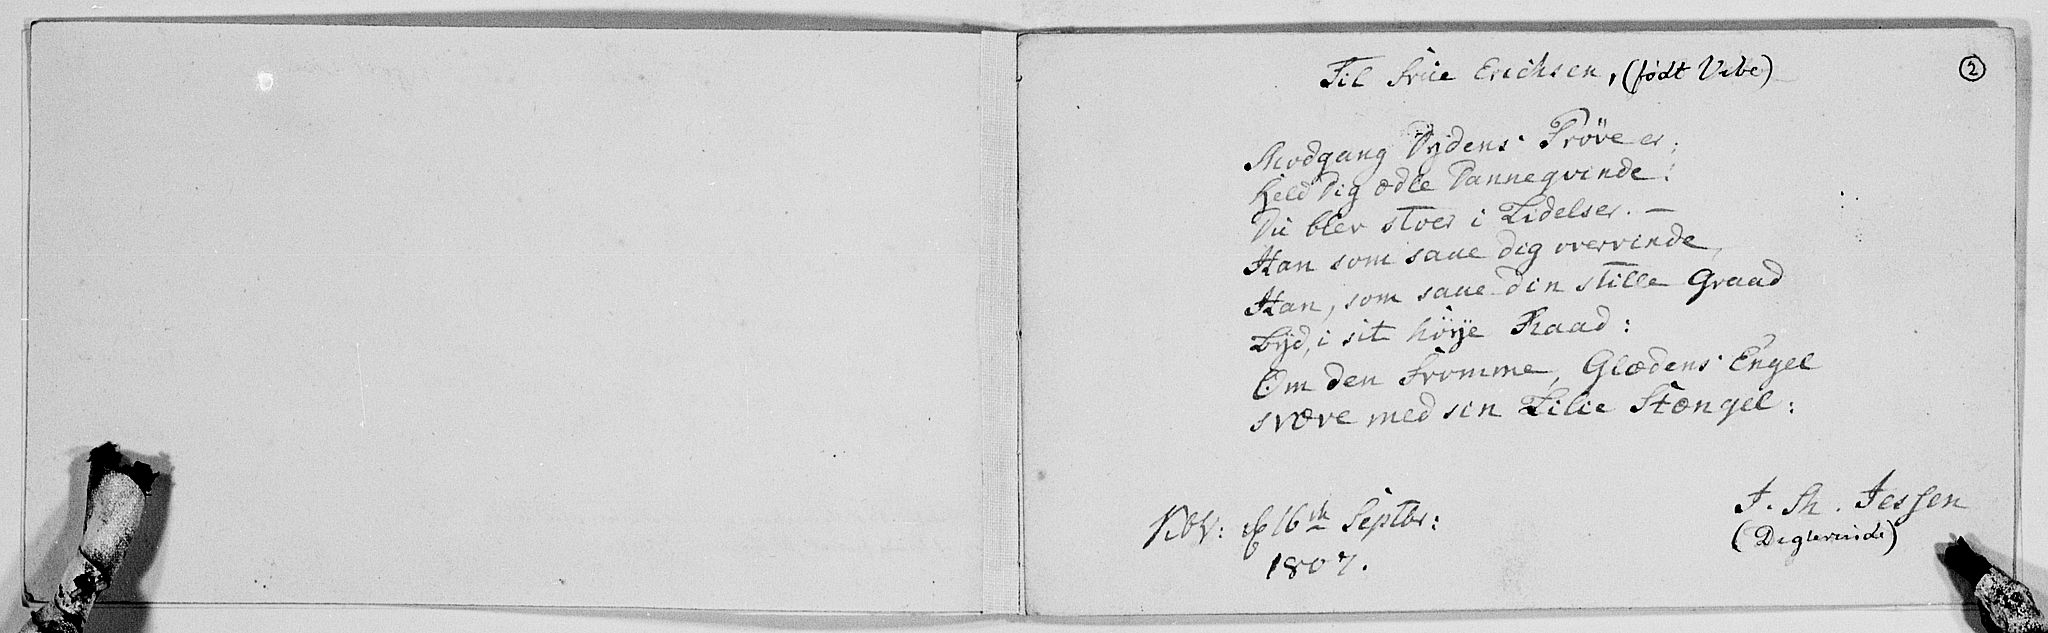 Til Frue Erichsen, (født Vibe)
2
Modgang Dydens Prøve er;
Held Dig ædle Danneqvinde!
Du blev stoer i Lidelser. —
Han som saae dig overvinde,
Han, som saae din stille Graad
Lyd, i sit höÿe Raad:
Om den Fromme, Glædens Engel
svæve med sin Lilie Stængel:
J. M. Jessen
(Digterinde)
Kbh: 16de Septbr:
1807.